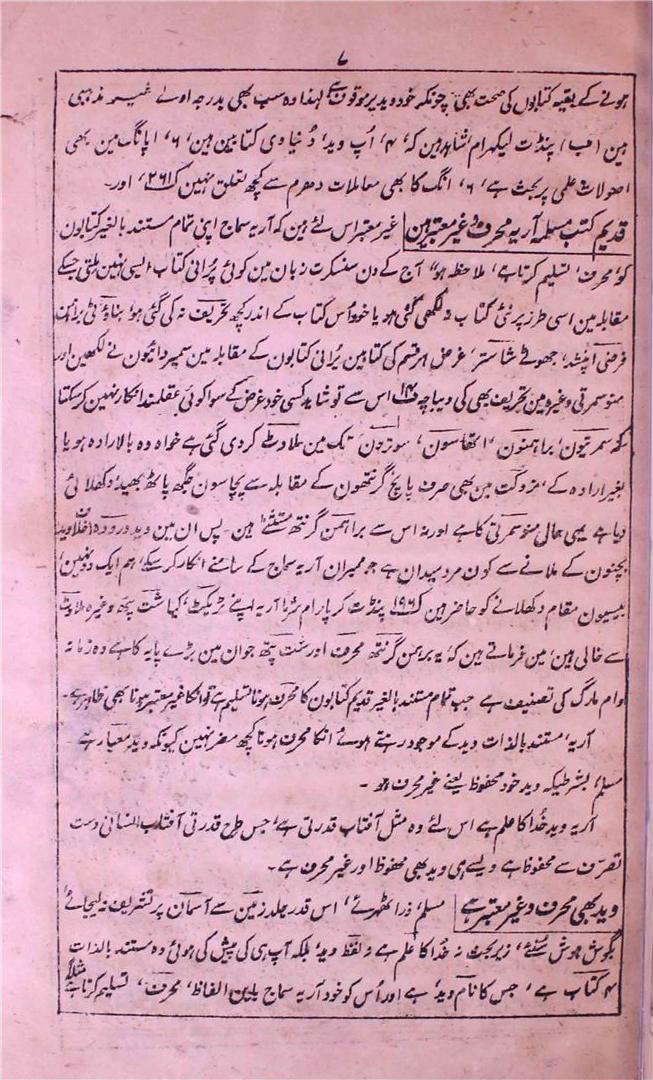 ۷
ہونے کے بقیہ کتابوں کی صحت بھی چونکہ خود وید پر موقوف ہے لہذا وہ سب بھی بدرجہ اولے غیر مذہبی
ہین (ب) پنڈت لیکہرام شاہد ہین کہ ۴، اُپ وید، دُنیاوی کتابین ہین، ۶، اپانگ مین بھی
اصولات علمی پر بحث ہے، ۶، انگ کا بھی معاملات دھرم سے کچھ تعلق نہین ۲۶۱، اور۔
قدیم کتب مسلمہ آریہ محرف و غیر معتبر ہین غیر معتبر اس لئے ہین کہ آریہ سماج اپنی تمام مستند بالغیر کتابون
کو، محرف، تسلیم کرتا ہے، ملاحظہ ہو، آج کے دن سنسکرت زبان مین کوئی پُرانی کتاب ایسی نہین ملتی جسکے
مقابلہ مین اسی طرز پر نئی کتاب نہ لکھی گئی ہو یا خود اُس کتاب کے اندر کچھ تحریف نہ کی گئی ہو
فرضی اُپنشد، جھوٹے شاستر، غرض ہر قسم کی کتابین پُرانی کتابون کے مقابلہ مین سمپردائیون نے لکھین اور
منوسمرتی وغیرہ مین تحریف بھی کی دیباچہ ۱۴ اس سے تو شاید کسی خود غرض کے سوا کوئی عقلمند انکار نہین کر سکتا
کہ سمرتیون، براہمنون، اتھاسون، سوترون، تک مین ملاوٹ کر دی گئی ہے خواہ وہ بالارادہ ہو یا
بغیر ارادہ کے، نروکت مین بھی صرف پانچ گرنتھون کے مقابلہ سے پچاسون جگھ پاٹھ بھید، دکھلائی
دیا ہے یہی حال منوسمرتی کا ہے اور نہ اس سے براہمن گرنتھ مستثنےٰ ہین۔ پس ان مین وید وردہ
بچنون کے ملانے سے کون مرد میدان ہے جو ممبران آریہ سماج کے سامنے انکار کر سکے، ہم ایک دو نہین،
بیسیون مقام دکھلانے کو حاضر ہین ۱۹۶ پنڈت کرپارام شرما آریہ اپنے ٹریکٹ، کیا شت پتھ وغیرہ ملاوٹ
سے خالی ہین، مین فرماتے ہین کہ، یہ برہمن گرنتھ محرف اور شت پتھ جو ان مین بڑے پایہ کا ہے وہ زمانہ
وام مارگ کی تصنیف ہے جب تمام مستند بالغیر قدیم کتابون کا محرف ہونا تسلیم ہے تو انکا غیر معتبر ہونا بھی ظاہر ہے۔
آریہ، مستند بالذات وید کے موجود رہتے ہوئے انکا محرف ہونا کچھ مضر نہین کیونکہ وید معیار ہے
مسلم، بشرطیکہ وید خود محفوظ یعنے غیر محرف ہو۔
آریہ وید خُدا کا علم ہے اس لئے وہ مثل آفتاب قدرتی ہے، جس طرح قدرتی آفتاب انسانی دست
تصرف سے محفوظ ہے ویسے ہی وید بھی محفوظ اور غیر محرف ہے۔
وید بھی محرف و غیر معتبر ہے مسلم، ذرا ٹھہرئے، اس قدر جلد زمین سے آسمان پر تشریف نہ لیجائے
بگوش ہوش سُنئے، زیر بحث نہ خُدا کا علم ہے نہ لفظ وید، بلکہ آپ ہی کی پیش کی ہوئی وہ مستند بالذات
۴ کتاب ہے، جس کا نام وید، ہے اور اُس کو خود آریہ سماج باین الفاظ، محرف، تسلیم کرتا ہے مثلاً